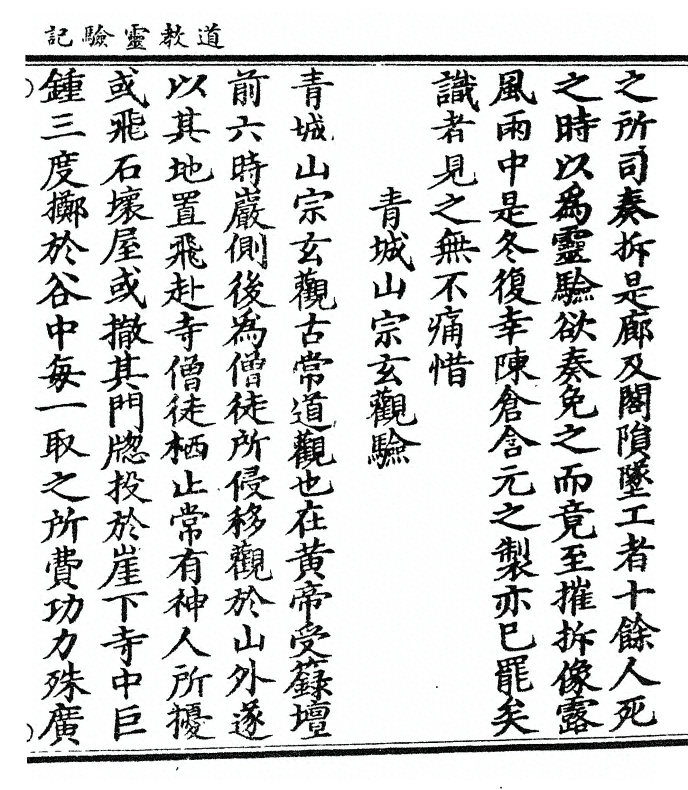 道教靈驗記
之所司奏拆是廊及閣隕墜工者十餘人死
之時以為靈驗欲奏免之而竟至摧拆像露
風雨中是冬復幸陳倉含元之製亦已罷矣
識者見之無不痛惜
青城山宗玄觀驗
青城山宗玄觀古常道觀也在黃帝受籙壇
前六時巖側後為僧徒所侵移觀於山外遂
以其地置飛赴寺僧徒栖止常有神人所擾
或飛石壞屋或撤其門牕投於崖下寺中巨
鍾三度擲於谷中每一取之所費功力殊廣